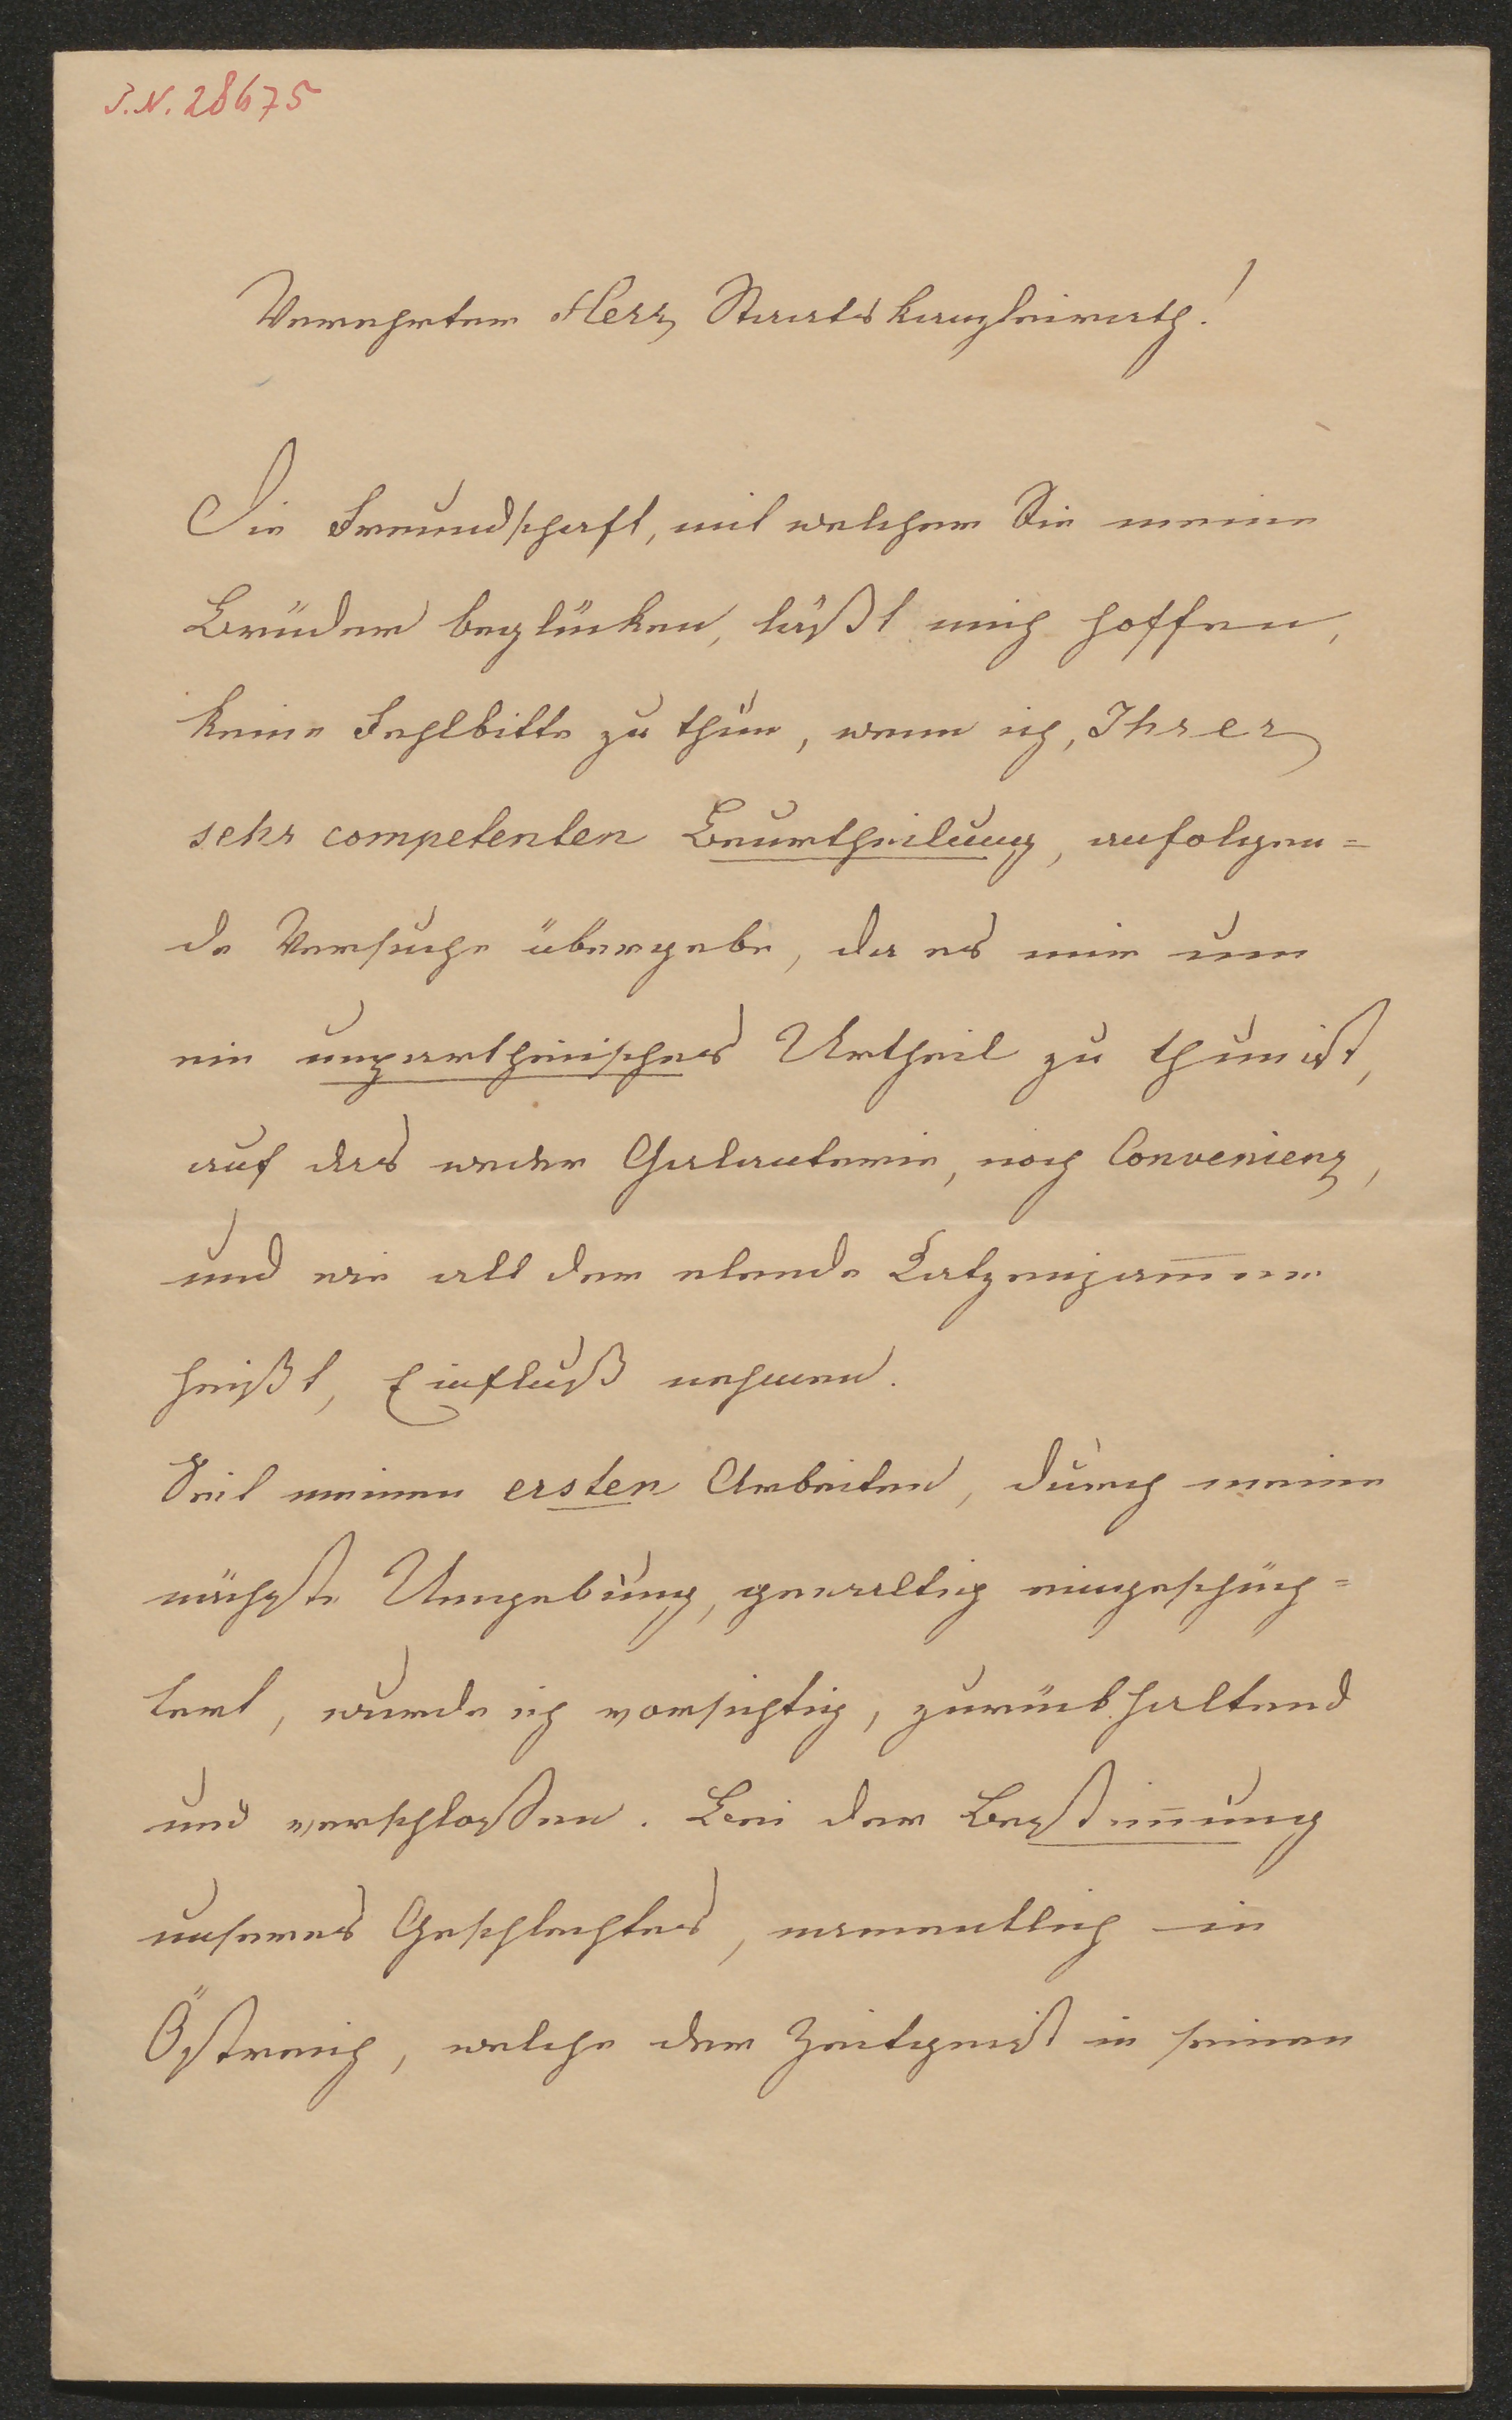 J.N. 28675
Verehrter Herr Staatskanzleirath!
Die Freundschaft, mit welcher Sie meine
Brüder beglücken, läßt mich hoffen,
keine Fehlbitte zu thun, wenn ich, Ihrer
sehr competenten Beurtheilung, anfolgen=
de Versuche übergebe, da es mir um
ein unpartheiisches Urtheil zu thun ist,
auf das weder Galanterie, noch Convenienz,
und wie all der elende Katzenjam̅er
heißt, Einfluß nehmen.
Seit meinen ersten Arbeiten, durch meine
nächste Umgebung, gewaltig eingeschüch=
tert, wurde ich vorsichtig, zurückhaltend
und verschloßen. Bei der Bestim̅ung
unseres Geschlechtes, namentlich in
Östreich, welche der Zeitgeist in seinen